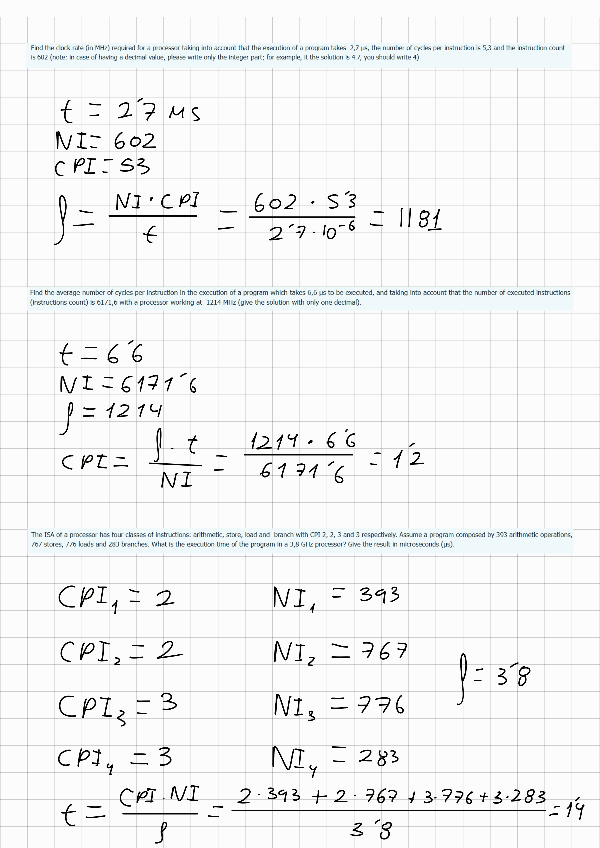 Find the clock rate (in MHz) required for a processor taking into account that the execution of a program takes 2,7 µs, the number of cycles per instruction is 5,3 and the instruction count
is 602 (note: in case of having a decimal value, please write only the integer part; for example, it the solution is 4.7, you should write 4)
t = 2'7 µs
NI= 602
CPI= 5'3
f = NI · CPI / t = 602 · 5'3 / 2'7·10^-6 = 1181
Find the average number of cycles per instruction in the execution of a program which takes 6,6 µs to be executed, and taking into account that the number of executed instructions
(instructions count) is 6171,6 with a processor working at 1214 MHz (give the solution with only one decimal).
t = 6'6
NI = 6171'6
f = 1214
CPI = f · t / NI = 1214 · 6'6 / 6171'6 = 1'2
The ISA of a processor has four classes of instructions: arithmetic, store, load and branch with CPI 2, 2, 3 and 3 respectively. Assume a program composed by 393 arithmetic operations,
767 stores, 776 loads and 283 branches. What is the execution time of the program in a 3,8 GHz processor? Give the result in microseconds (µs).
CPI₁ = 2 NI₁ = 393
CPI₂ = 2 NI₂ = 767
f = 3'8
CPI₃ = 3 NI₃ = 776
CPI₄ = 3 NI₄ = 283
t = CPI · NI / f = 2·393 + 2·767 + 3·776 + 3·283 / 3'8 = 1'4